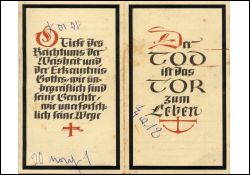 O Tiefe des
Reichtums der
Weisheit und
der Erkenntnis
Gottes, wie un-
begreiflich sind
seine Gerichte,
wie unerforsch-
lich seine Wege
Der
TOD
ist das
TOR
zum
Leben